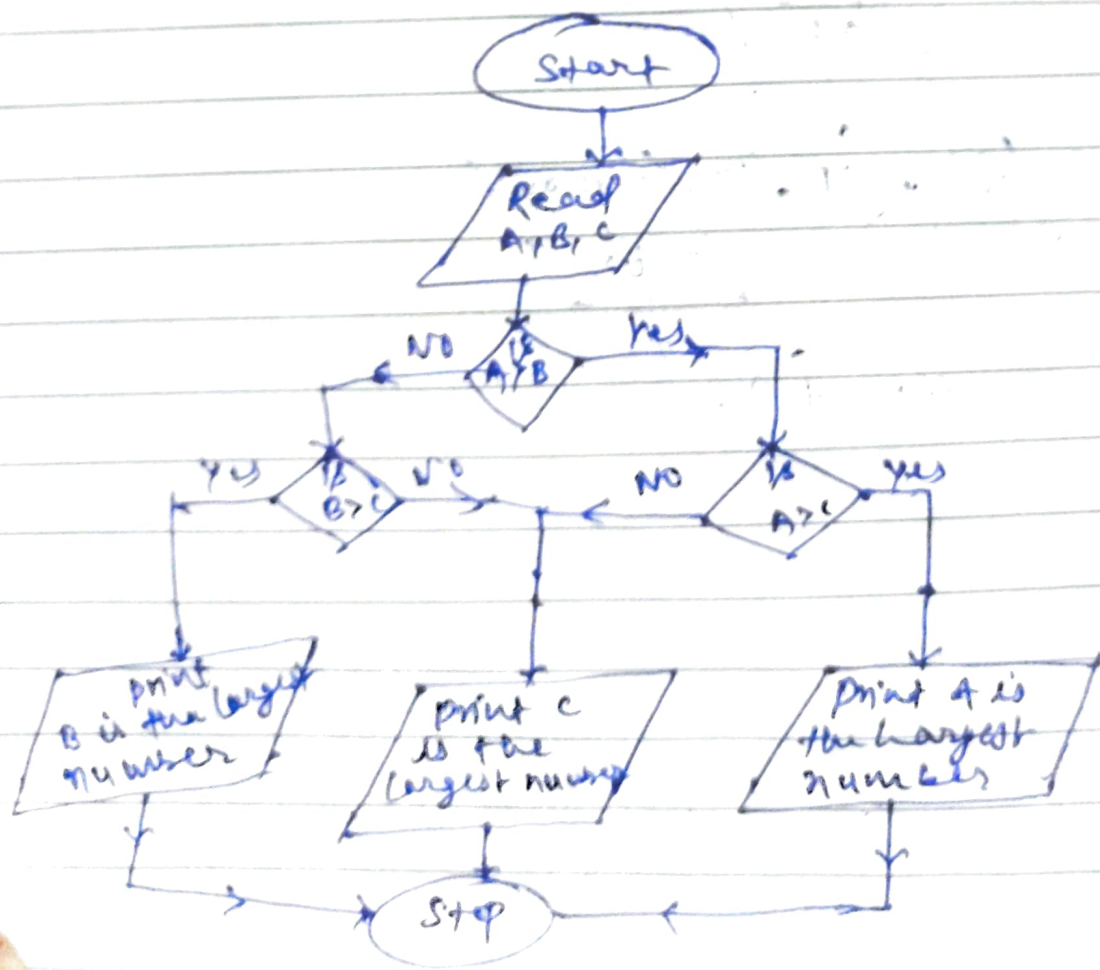 Start
Read
A, B, C
NO
Yes
is
A > B
Yes
is
B > C
NO
NO
is
A > C
Yes
print
B is the largest
number
print C
is the
largest number
print A is
the largest
number
Stop